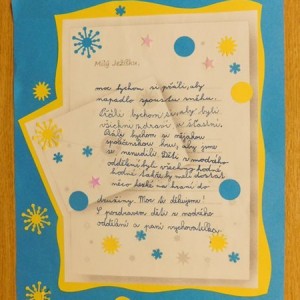 Milý Ježíšku,
moc bychom si přáli, aby
napadlo spoustu sněhu.
Přáli bychom si, aby byli
všichni zdraví a šťastní.
Přáli bychom si nějakou
společenskou hru, aby jsme
se nenudili. Děti z modrého
oddělení byli všichni hodné
hodně takže by měli dostat
něco hezké na hraní do
družiny. Moc ti děkujeme.
S pozdravem děti z modrého
oddělení a paní vychovatelka.